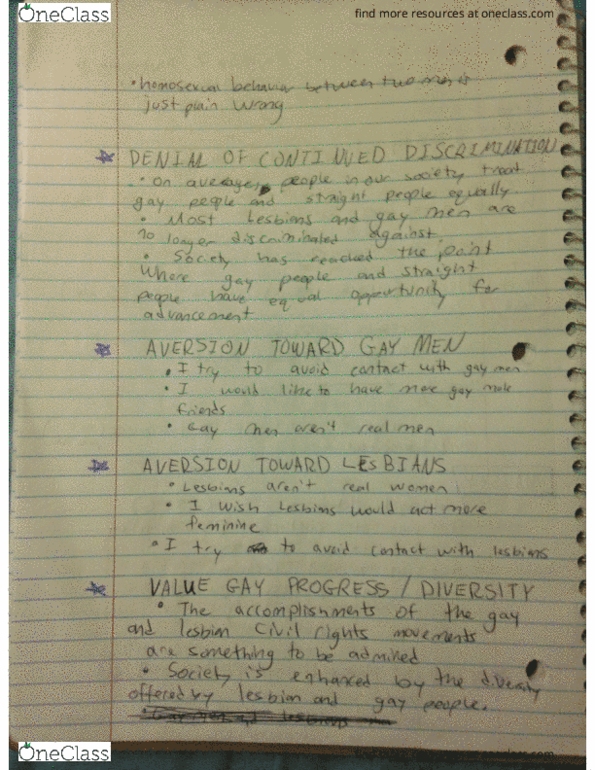 OneClass
find more resources at oneclass.com
• homosexual behavior between two men is
just plain wrong
DENIAL OF CONTINUED DISCRIMINATION
• On average, people in our society treat
gay people and straight people equally
• Most lesbians and gay men are
no longer discriminated against
• Society has reached the point
where gay people and straight
people have equal opportunity for
advancement
AVERSION TOWARD GAY MEN
• I try to avoid contact with gay men
• I would like to have more gay male
friends
• Gay men aren't real men
AVERSION TOWARD LESBIANS
• Lesbians aren't real women
• I wish lesbians would act more
feminine
• I try to avoid contact with lesbians
VALUE GAY PROGRESS / DIVERSITY
• The accomplishments of the gay
and lesbian civil rights movements
are something to be admired
• Society is enhanced by the diversity
offered by lesbian and gay people.
OneClass
find more resources at oneclass.com